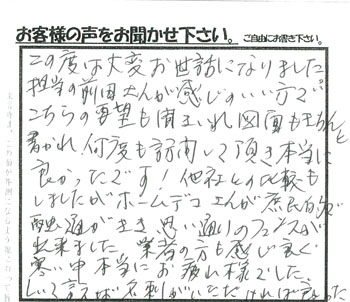 お客様の声をお聞かせ下さい。ご自由にお書き下さい。
この度は大変お世話になりました
担当の前田さんが感じのいい方で
こちらの要望も聞き入れ図面もきちんと
書かれ何度も訪問して頂き本当に
良かったです！他社との比較も
しましたがホームデコさんが庶民的で
融通がきき思い通りのフェンスが
出来ました 業者の方も感じ良く
寒い中本当にお疲れ様でした
しいて言えば名刺がいただければ良かった